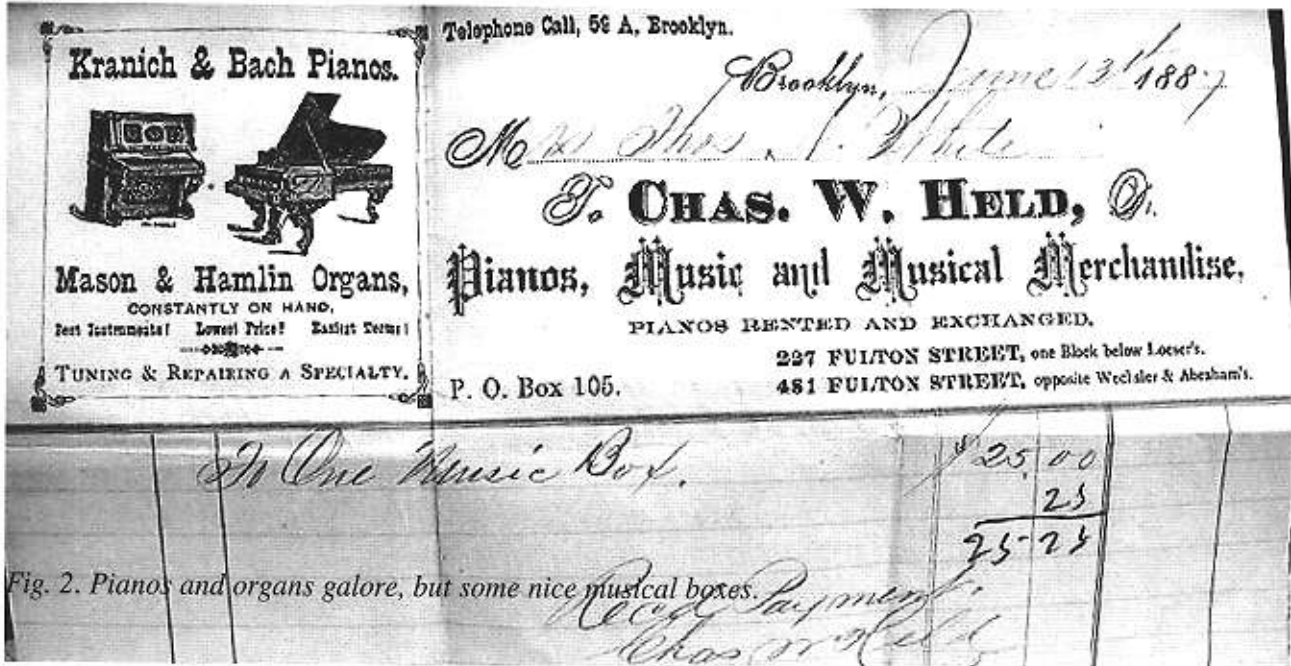 Kranich & Bach Pianos.
Mason & Hamlin Organs,
CONSTANTLY ON HAND,
Best Instruments! Lowest Price! Easiest Terms!
TUNING & REPAIRING A SPECIALTY.
Telephone Call, 59 A, Brooklyn.
Brooklyn, June 13th 1887
Mrs Thos. White
To CHAS. W. HELD, Dr.
Pianos, Music and Musical Merchandise.
PIANOS RENTED AND EXCHANGED.
227 FULTON STREET, one Block below Loeser's.
P. O. Box 105.
481 FULTON STREET, opposite Wechsler & Abraham's.
To One Music Box. $25 00
25
25 25
Fig. 2. Pianos and organs galore, but some nice musical boxes.
Rec'd Payment.
Chas W Held